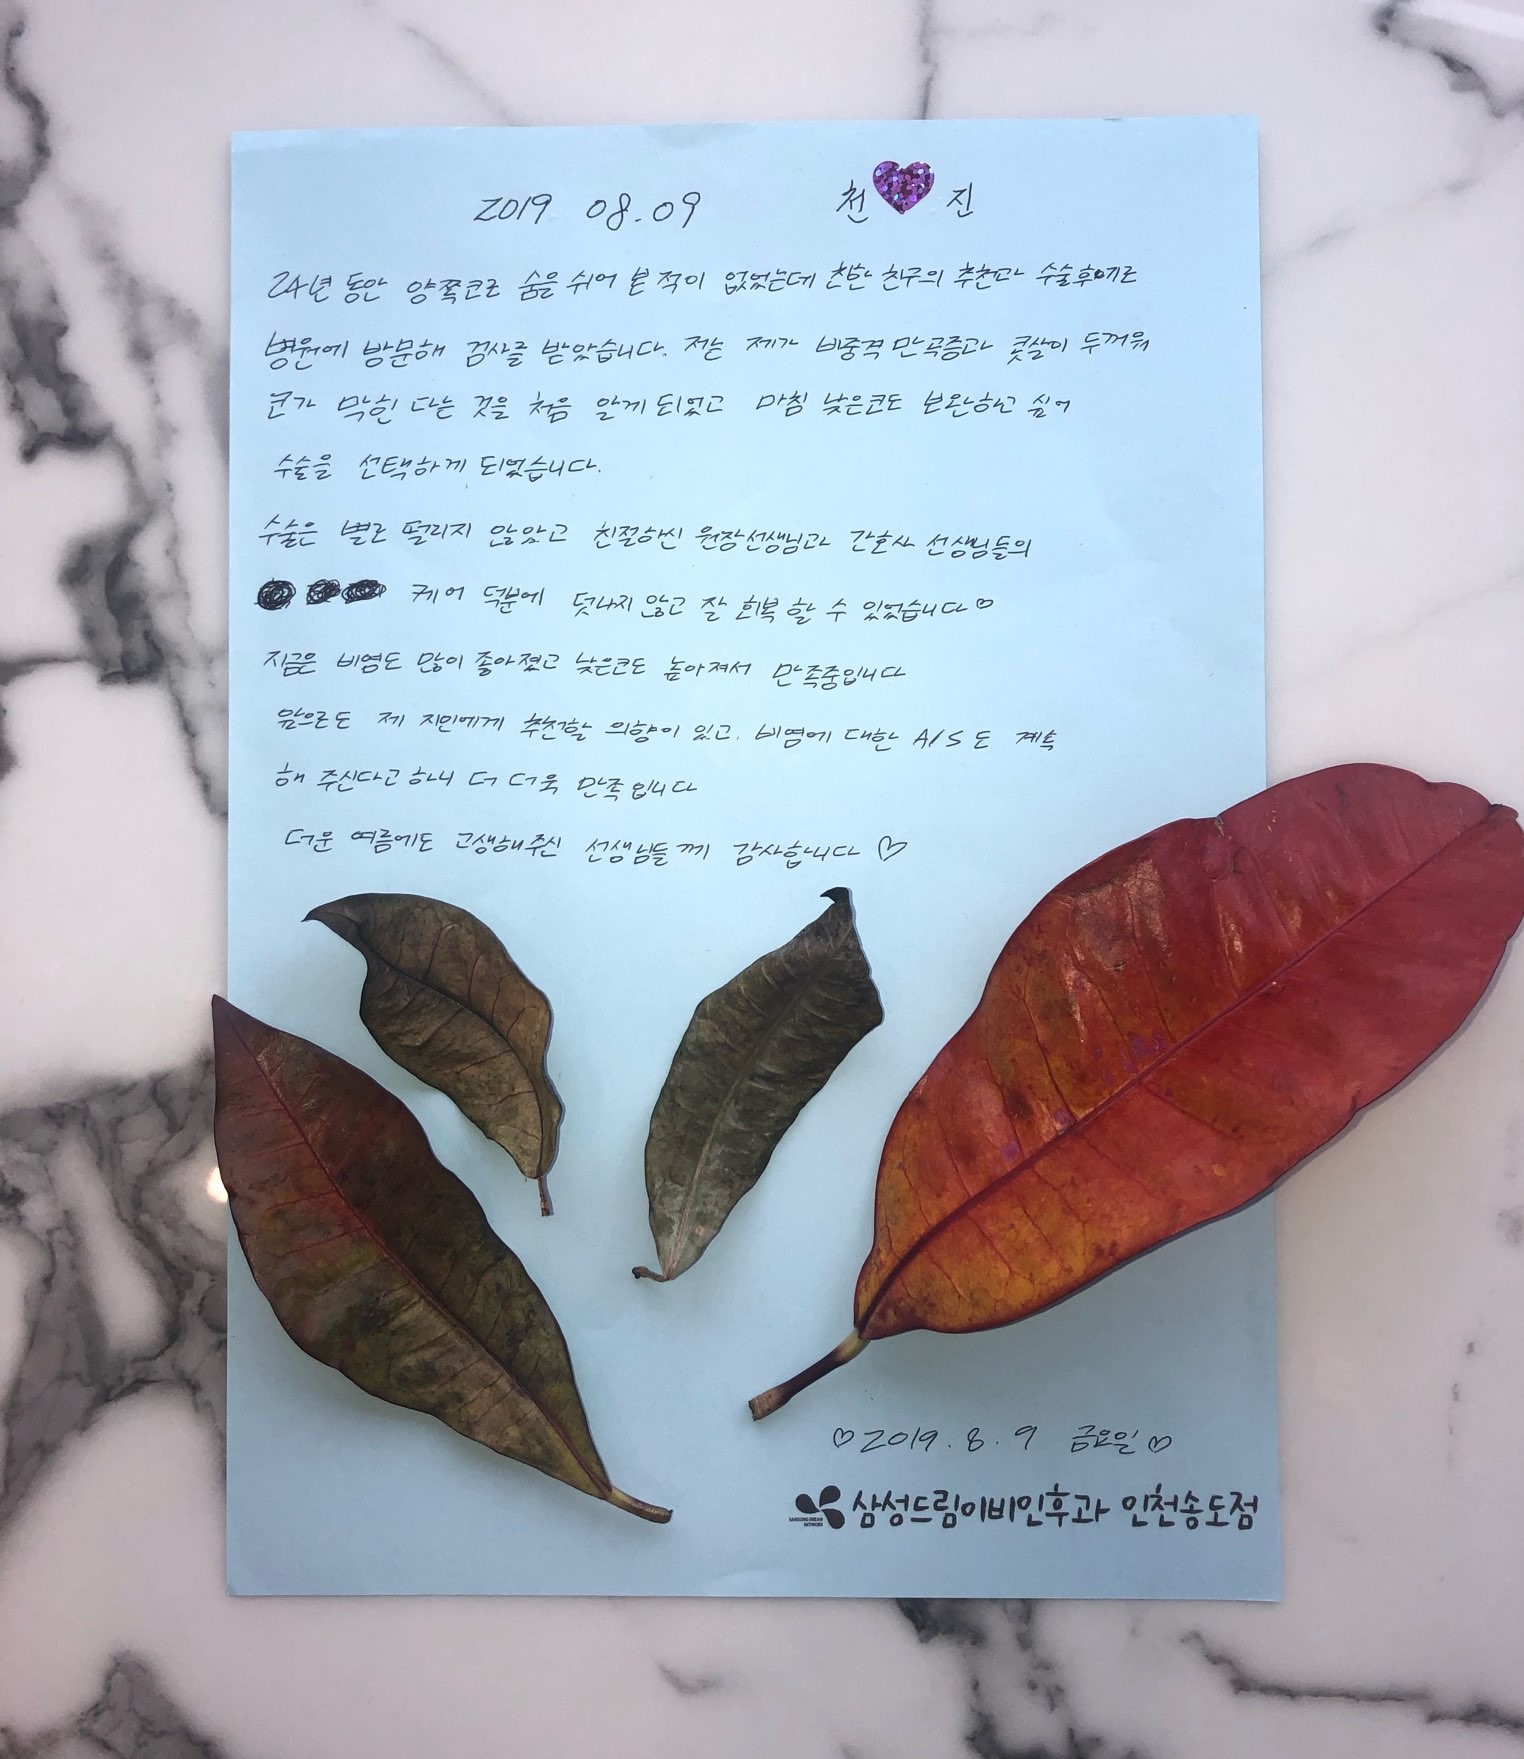 2019 08.09 천 진
24년 동안 양쪽코로 숨을 쉬어 본 적이 없었는데 친한 친구의 추천과 수술후에로
병원에 방문해 검사를 받았습니다. 저는 제가 비중격 만곡증과 콧살이 두꺼워
코가 막힌 다는 것을 처음 알게 되었고 마침 낮은코도 보완하고 싶어
수술을 선택하게 되었습니다.
수술은 별로 떨리지 않았고 친절하신 원장선생님과 간호사 선생님들의
케어 덕분에 덧나지 않고 잘 회복 할 수 있었습니다♡
지금은 비염도 많이 좋아졌고 낮은코도 높아져서 만족중입니다
앞으로도 제 지인에게 추천할 의향이 있고. 비염에 대한 A/S도 계속
해 주신다고 하니 더 더욱 만족입니다
더운 여름에도 고생해주신 선생님들께 감사합니다 ♡
♡2019.8.9 금요일♡
SAMSUNG DREAM NETWORK 삼성드림이비인후과 인천송도점